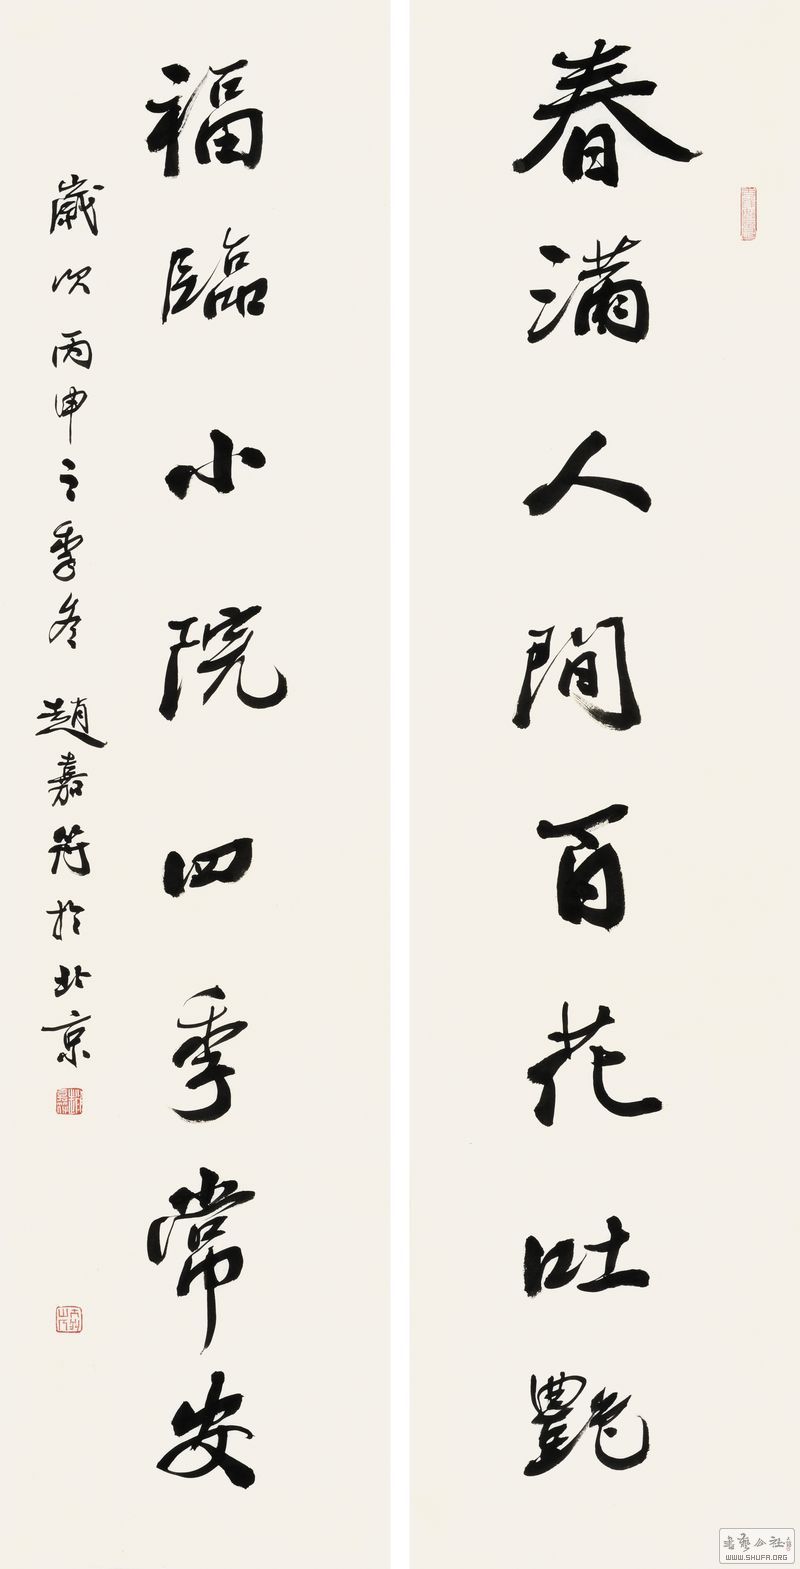 春滿人間百花吐艷
福臨小院四季常安
歲次丙申之季冬 趙嘉符於北京
書藝公社
WWW.SHUFA.ORG